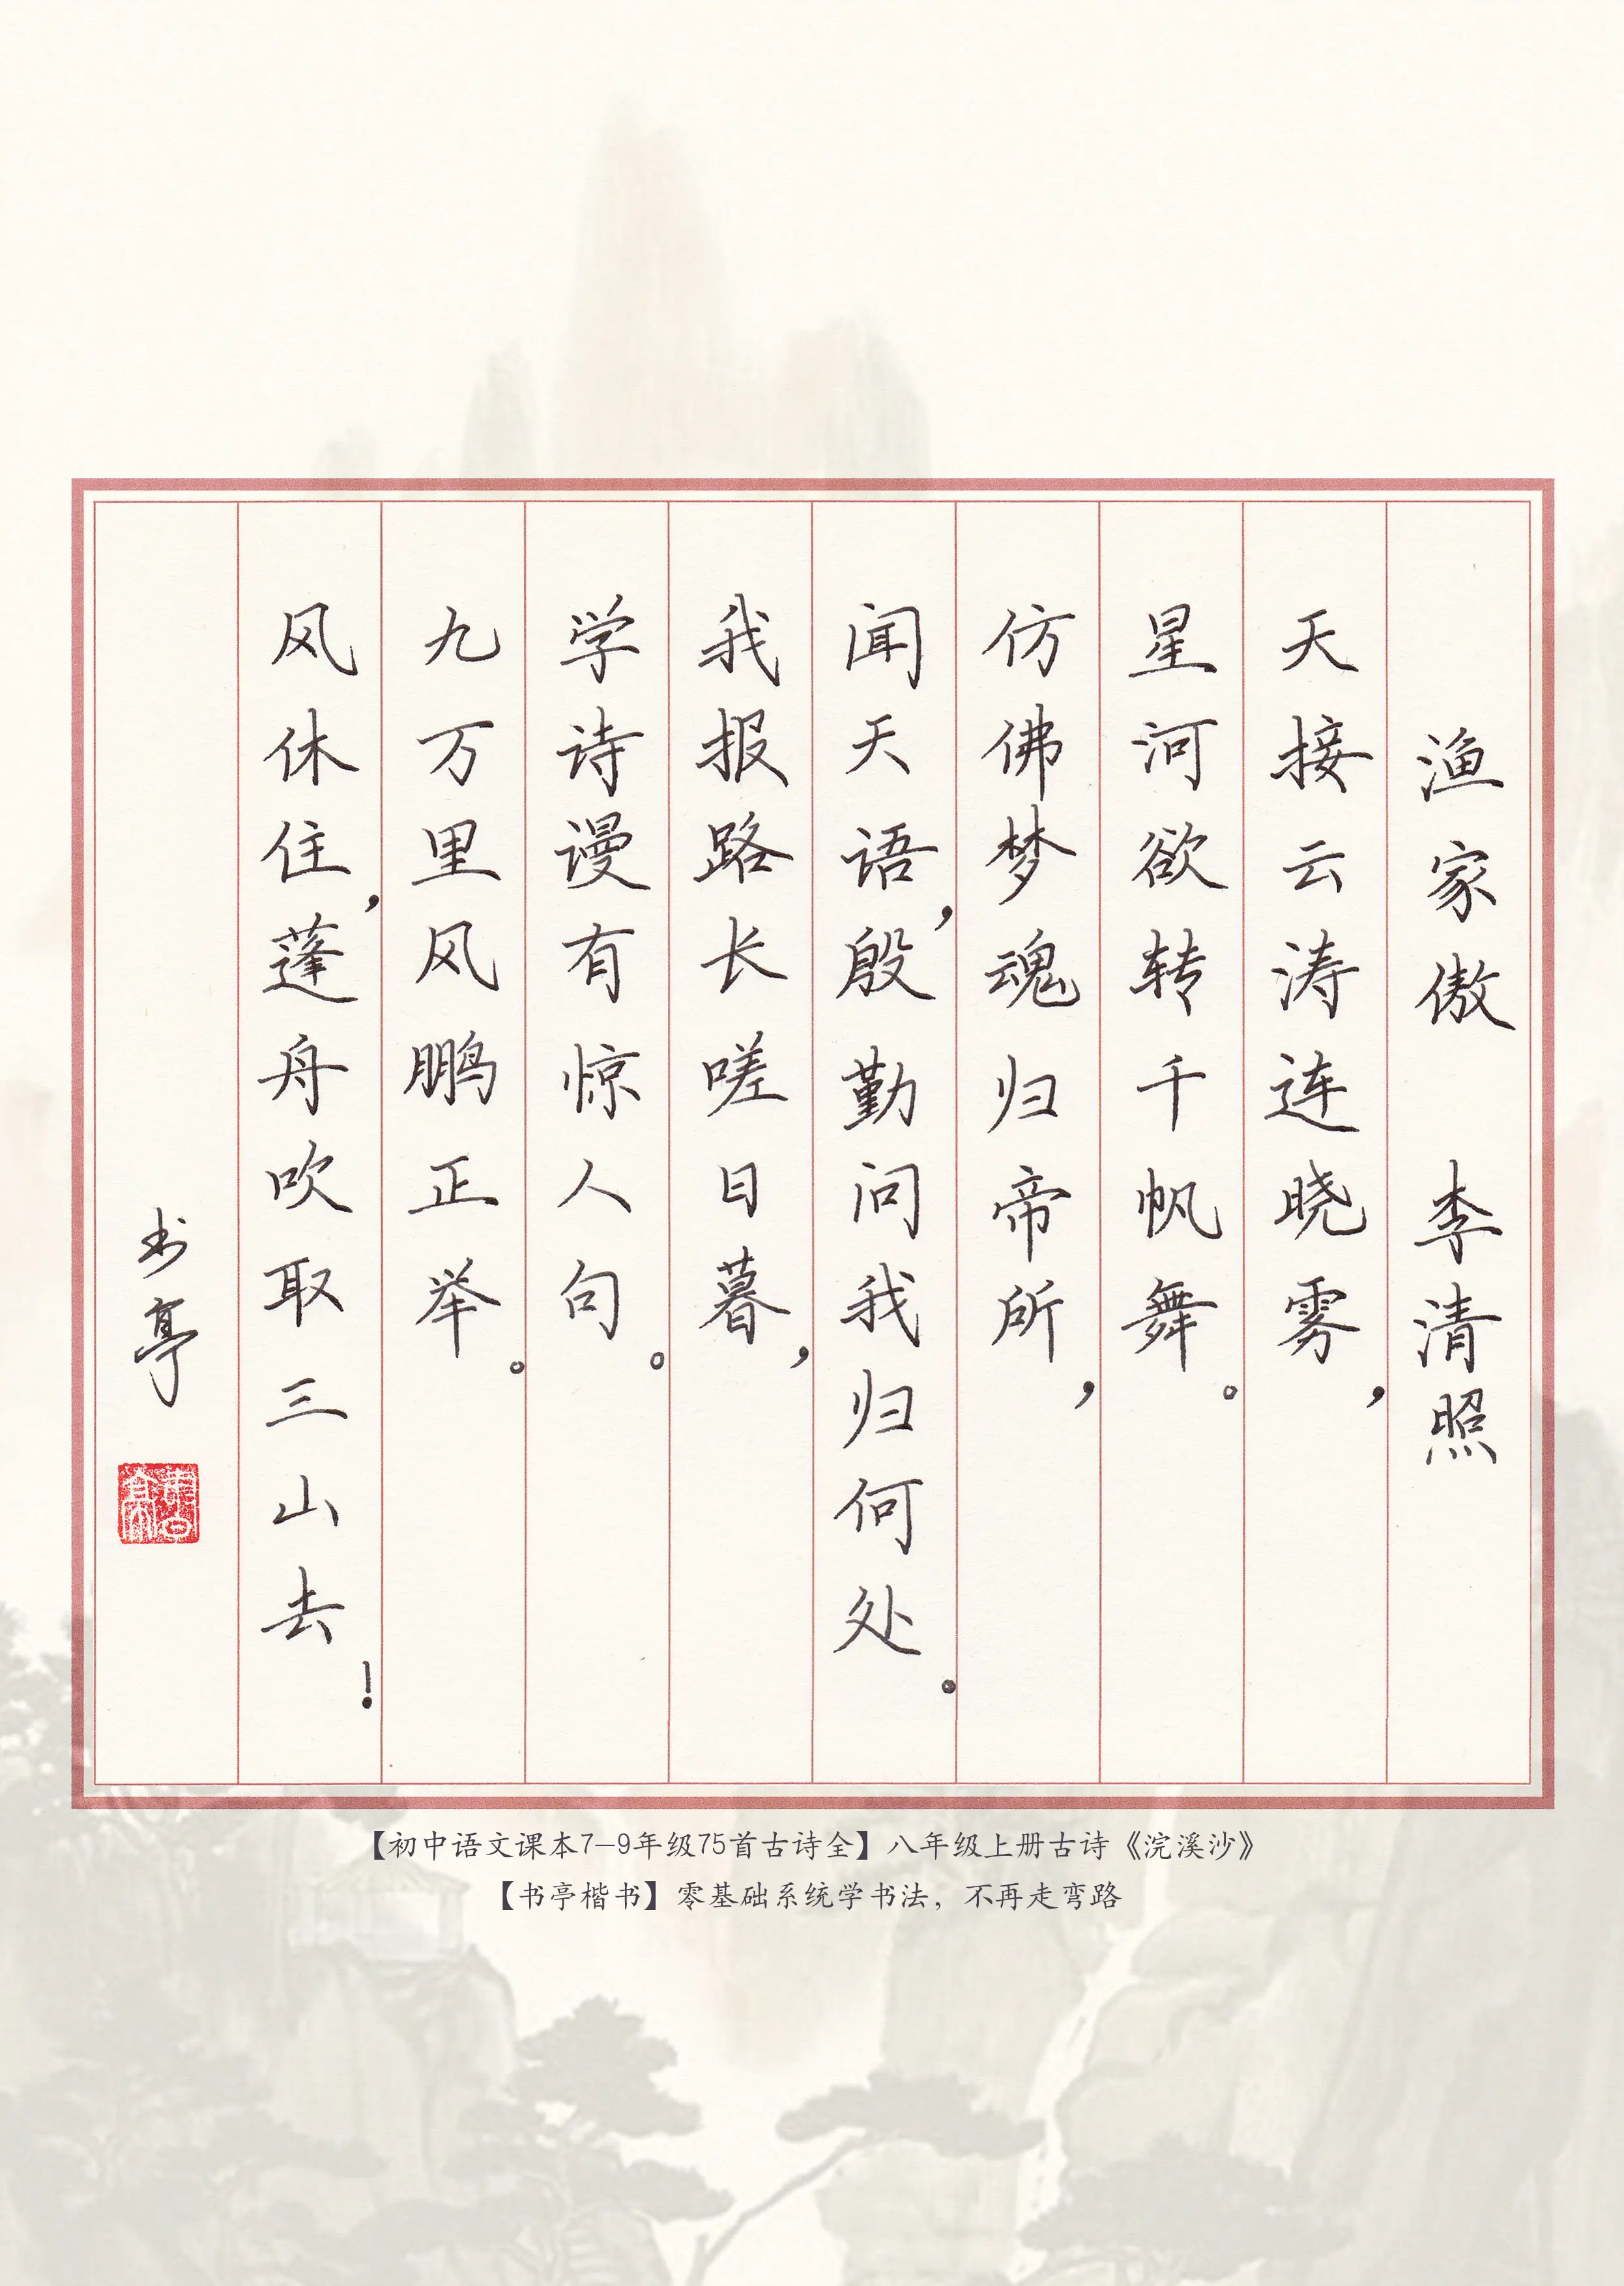 渔家傲 李清照
天接云涛连晓雾，
星河欲转千帆舞。
仿佛梦魂归帝所，
闻天语，殷勤问我归何处。
我报路长嗟日暮，
学诗谩有惊人句。
九万里风鹏正举。
风休住，蓬舟吹取三山去！
书亭
【初中语文课本7-9年级75首古诗全】八年级上册古诗《浣溪沙》
【书亭楷书】零基础系统学书法，不再走弯路